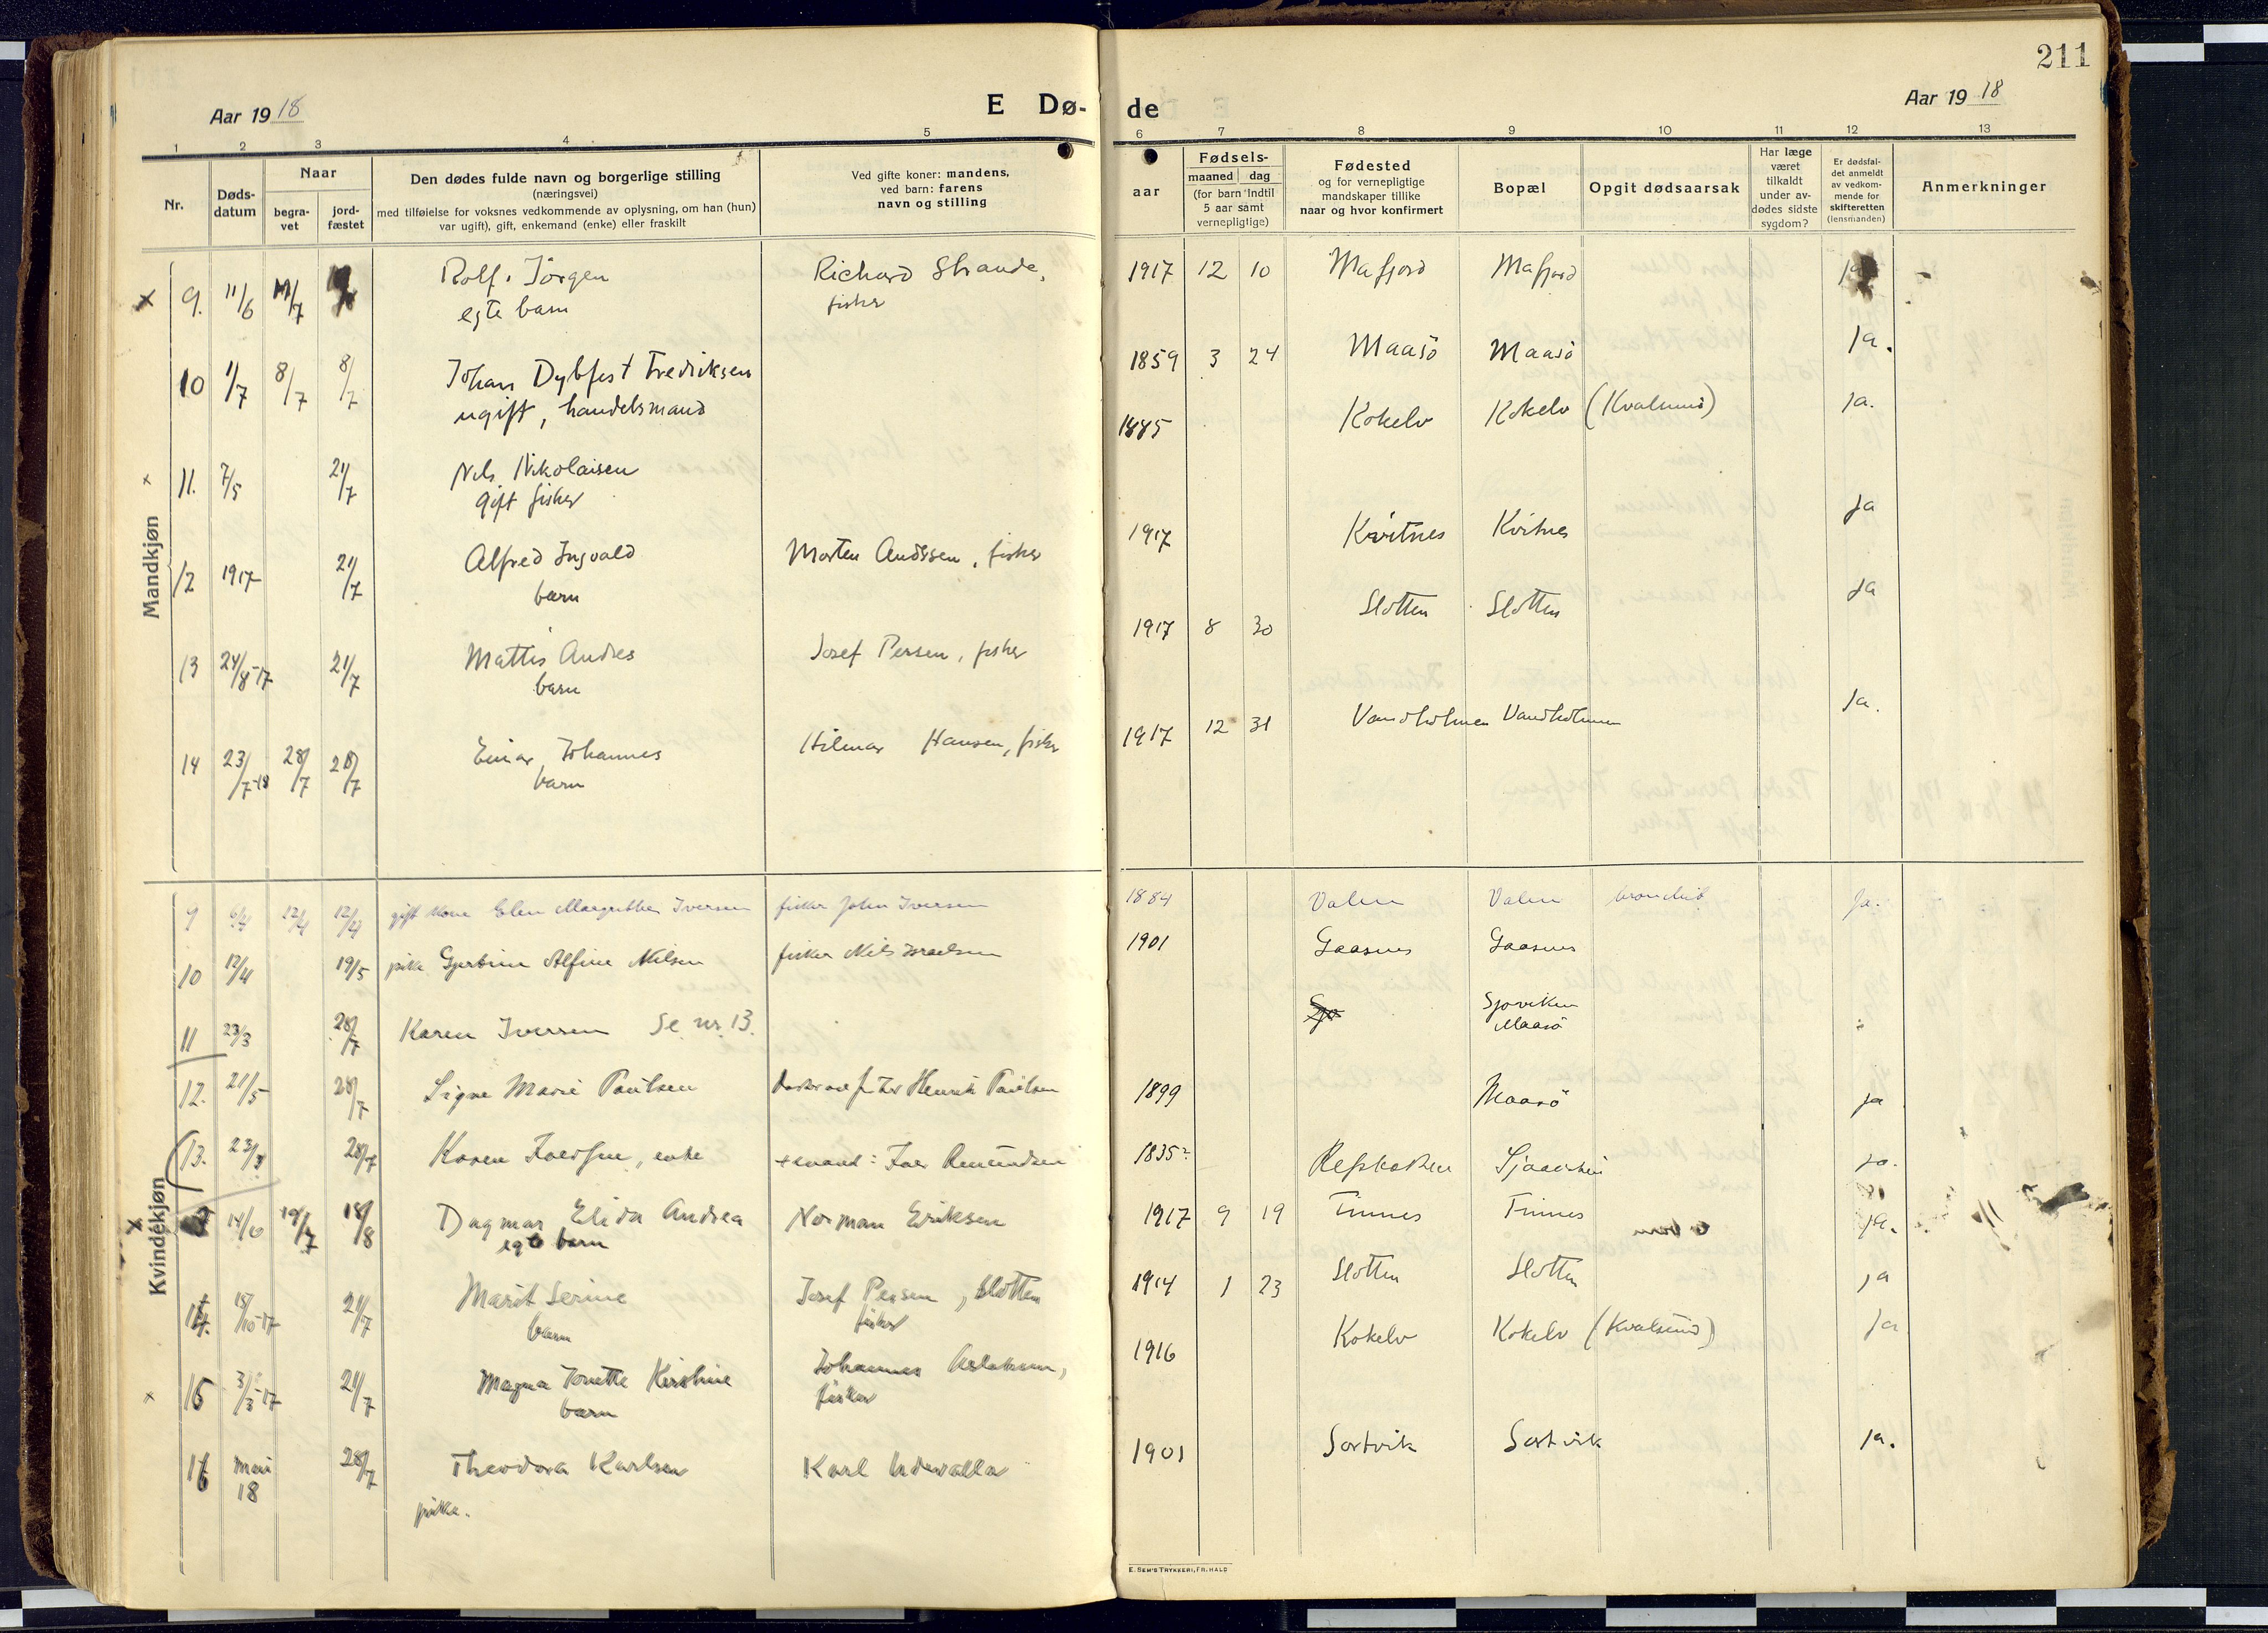 211
Aar 19 18
E Dø-
de
Aar 19 18
1 2 3 4 5 6 7 8 9 10 11 12 13
Nr.
Døds-
datum
Naar
begra-
vet
jord-
fæstet
Den dødes fulde navn og borgerlige stilling
(næringsvei)
med tilføielse for voksnes vedkommende av oplysning, om han (hun)
var ugift), gift, enkemand (enke) eller fraskilt
Ved gifte koner: mandens,
ved barn: farens
navn og stilling
aar
Fødsels-
maaned dag
(for barn indtil
5 aar samt
vernepligtige)
Fødested
og for vernepligtige
mandskaper tillike
naar og hvor konfirmert
Bopæl
Opgit dødsaarsak
Har læge
været
tilkaldt
under av-
dødes sidste
sygdom?
Er dødsfal-
det anmeldt
av vedkom-
mende for
skifteretten
(lensmanden)
Anmerkninger
Mandkjøn
x 9. 11/6 Rolf. Jörgen Richard Strande, 1917 12 10 Mafjord Mafjord ja
egte barn fisker
10 1/7 8/7 8/7 Johan Dybfest Fredriksen 1859 3 24 Maasö Maasö ja.
ugift, handelsmand
x 11. 7/5 21/7 Nils Nikolaisen 1885 Kokelv Kokelv (Kvalsund) ja.
gift fisker
12 1917 21/7 Alfred Ingvald Morten Andssen, fisker 1917 Kvitnes Kvitnes ja
barn
13 24/8-17 21/7 Mattis Andres Josef Persen, fisker 1917 8 30 Slotten Slotten ja
barn
14 23/7-18 28/7 28/7 Einar Johannes Hilmar Hansen, fisker 1917 12 31 Vandholmen Vandholmen ja.
barn
Kvindekjøn
9 6/4 12/4 12/4 gift kone Elen Margrethe Iversen fisker John Iversen 1884 Valen Valen bronchit ja.
10 12/4 19/5 pike Gjertine Alfine Nilsen fisker Nils Israelsen 1901 Gaasnes Gaasnes
11 23/3 28/7 Karen Iversen Se nr. 13. Sjoviken
Maasö
12. 21/5 28/7 Signe Marie Paulsen Henrik Paulsen 1899 Maasö ja
13. 23/3 28/7 Karen Iversen, enke Iver 1835? ja.
x 14/6 19/7 18/8 Dagmar Elida Andrea Norman Eriksen 1917 9 19 Finnes Finnes ja.
egte barn
14. 15/10-17 21/7 Marit Serine Josef Persen, Slotten 1914 1 23 Slotten Slotten ja
barn fisker
x 15 3/3-17 21/7 Magna Jonette Kirstine Johannes Aslaksen, 1916 Kokelv Kokelv (Kvalsund) ja
barn fisker
16 mai 18 28/7 Theodora Karlsen Karl 1901 Sortvik Sortvik ja.
pike.
E. SEM'S TRYKKERI, FR.HALD